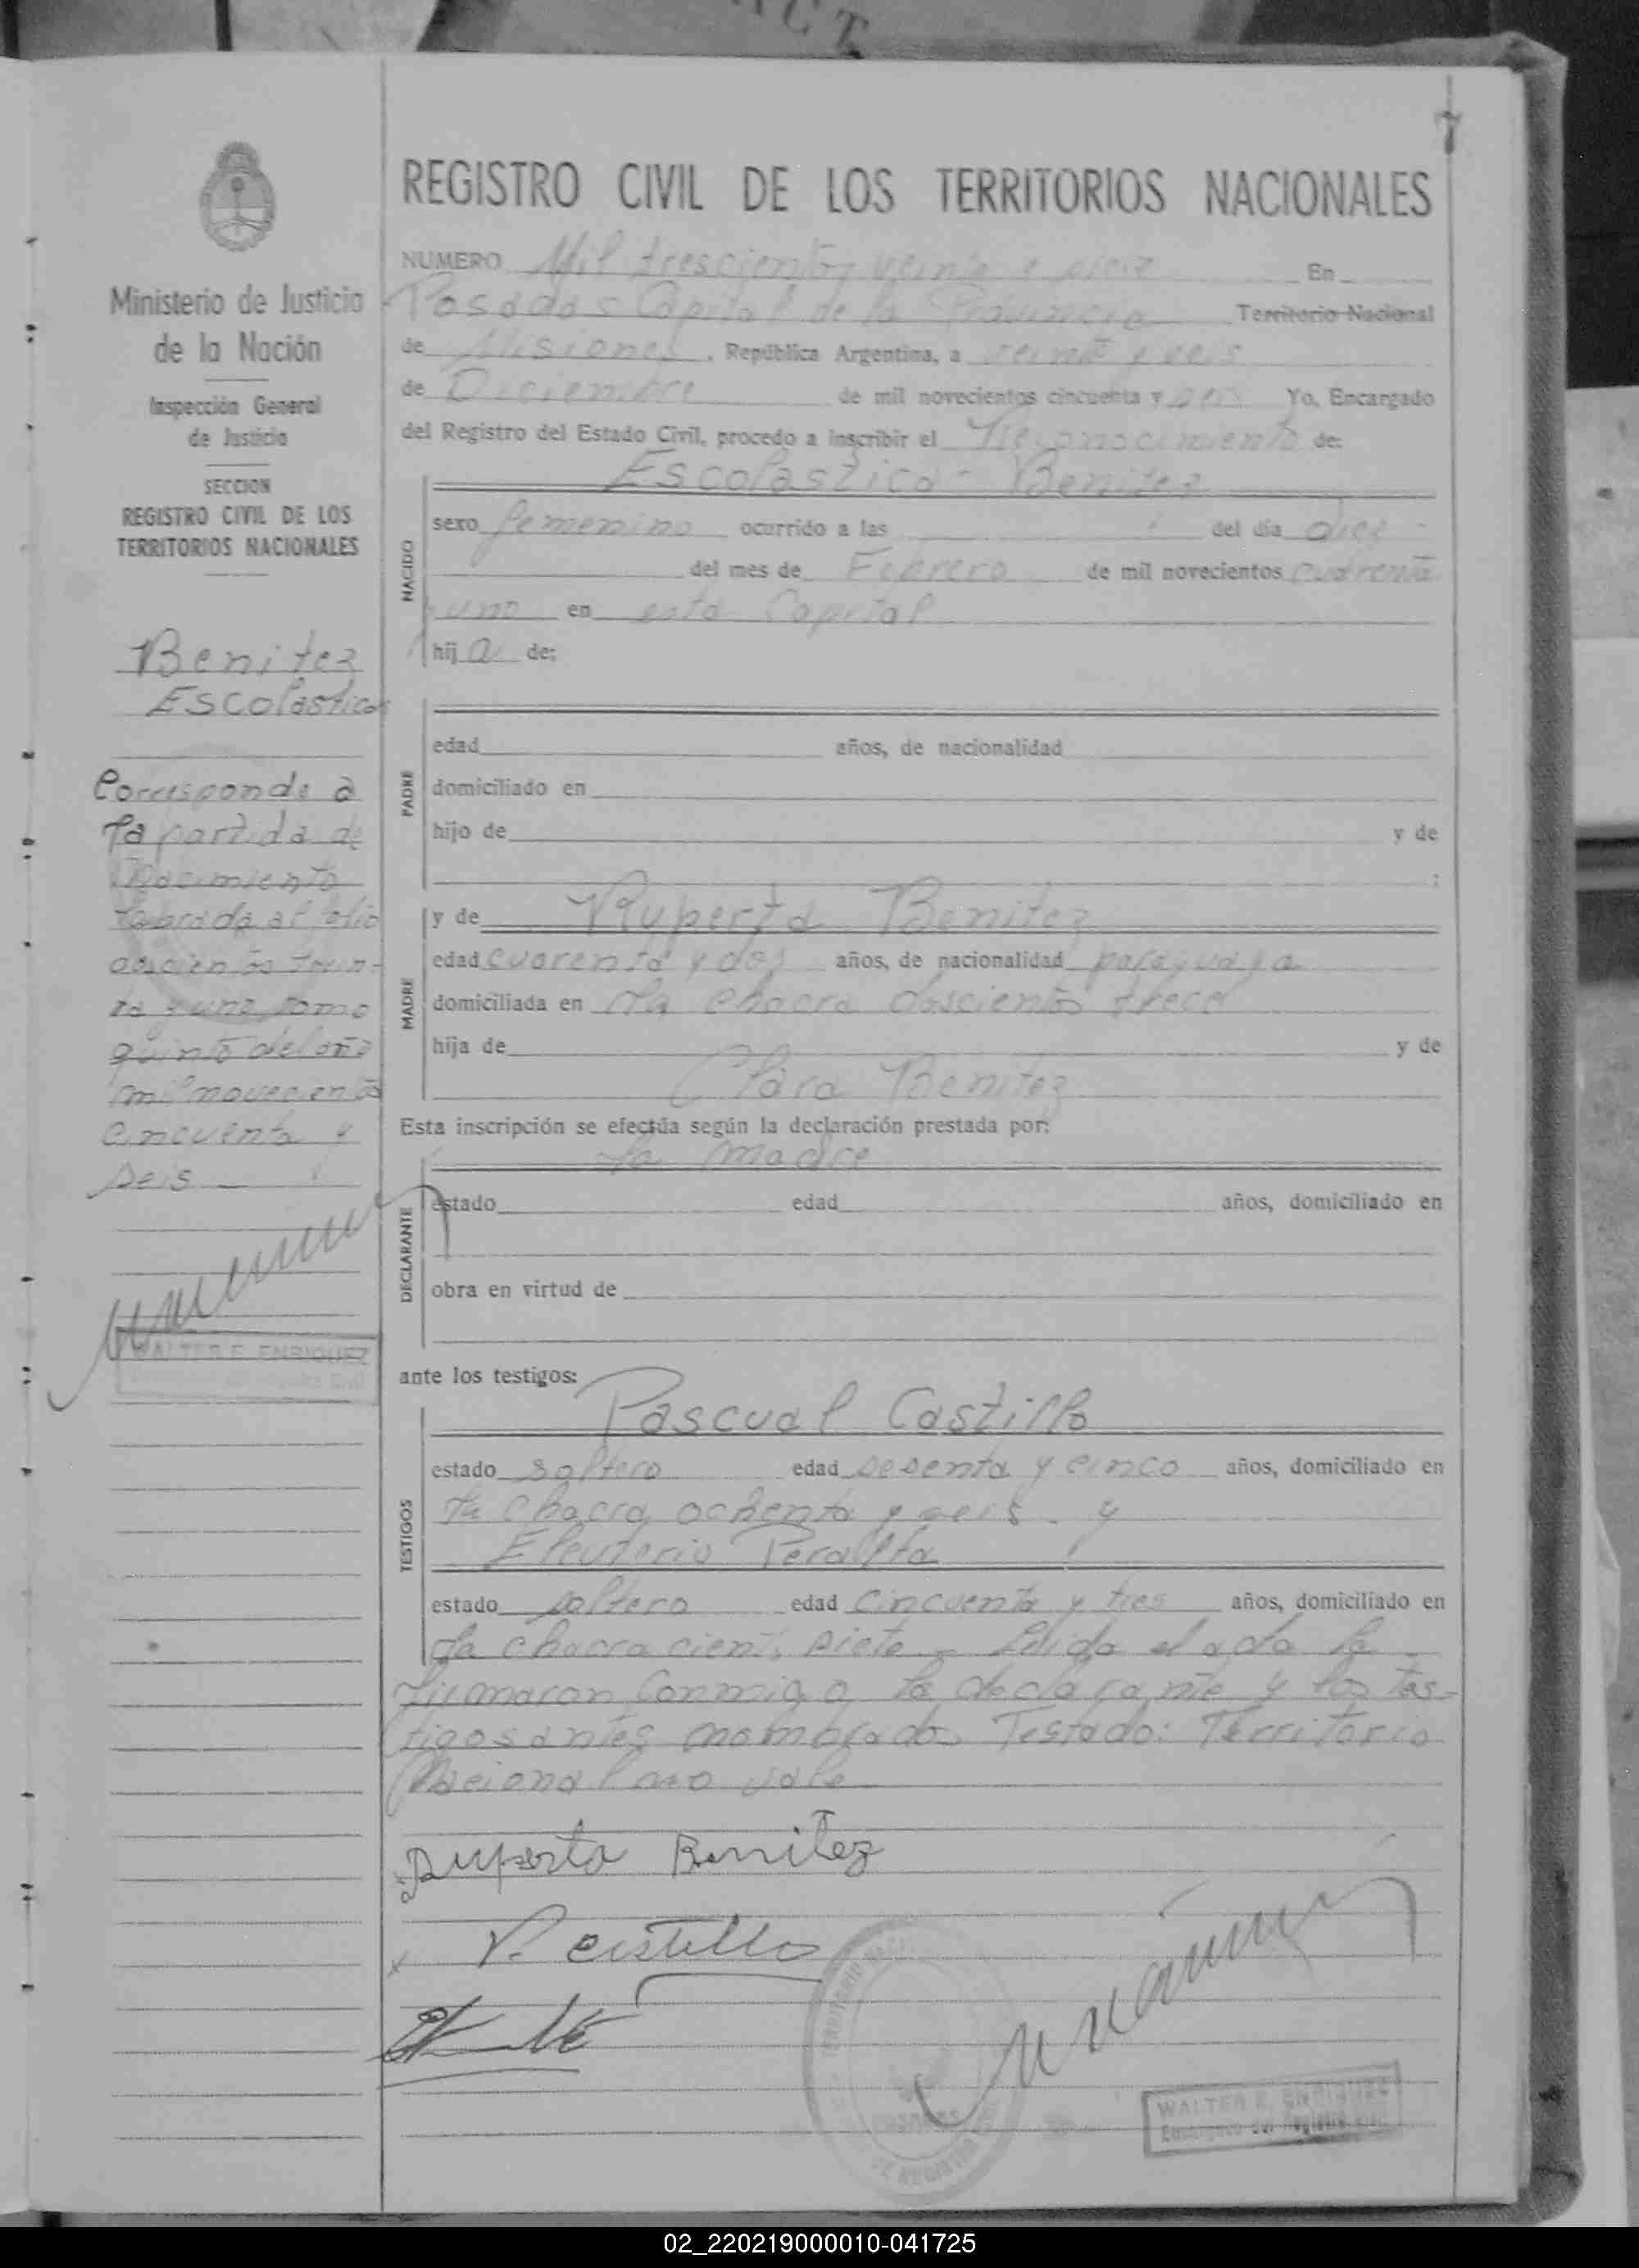 7
REGISTRO CIVIL DE LOS TERRITORIOS NACIONALES
Ministerio de Justicia
de la Nación
Inspección General
de Justicia
SECCION
REGISTRO CIVIL DE LOS
TERRITORIOS NACIONALES
Benitez
Escolastica
Corresponde a
la partida de
Nacimiento
labrada al folio
doscientos trein-
ta y uno tomo
quinto del año
mil novecientos
cincuenta y
seis
WALTER E. ENRIQUEZ
NUMERO Mil trescientos veinte y En
Posadas Capital de la Provincia Territorio Nacional
de Misiones, República Argentina, a veinte y seis
de Diciembre de mil novecientos cincuenta y seis Yo, Encargado
del Registro del Estado Civil, procedo a inscribir el Reconocimiento de:
Escolastica Benitez
NACIDO
sexo femenino ocurrido a las del día diez
del mes de Febrero de mil novecientos cuarenta
y uno en esta Capital
hija de:
PADRE
edad años, de nacionalidad
domiciliado en
hijo de y de
;
MADRE
y de Ruperta Benitez
edad cuarenta y dos años, de nacionalidad paraguaya
domiciliada en la chacra doscientos trece
hija de y de
Clara Benitez
Esta inscripción se efectúa según la declaración prestada por:
la madre
DECLARANTE
estado edad años, domiciliado en
obra en virtud de
ante los testigos:
Pascual Castillo
TESTIGOS
estado soltero edad sesenta y cinco años, domiciliado en
la chacra ochenta y seis y
Eleuterio Peralta
estado soltero edad cincuenta y tres años, domiciliado en
la chacra ciento siete - Leida el acta la
firmaron conmigo la declarante y los tes-
tigos antes nombrados Testado: Territorio
Nacional no vale
Ruperta Benitez
P. Castillo
WALTER E. ENRIQUEZ
Encargado del Registro Civil
02_220219000010-041725